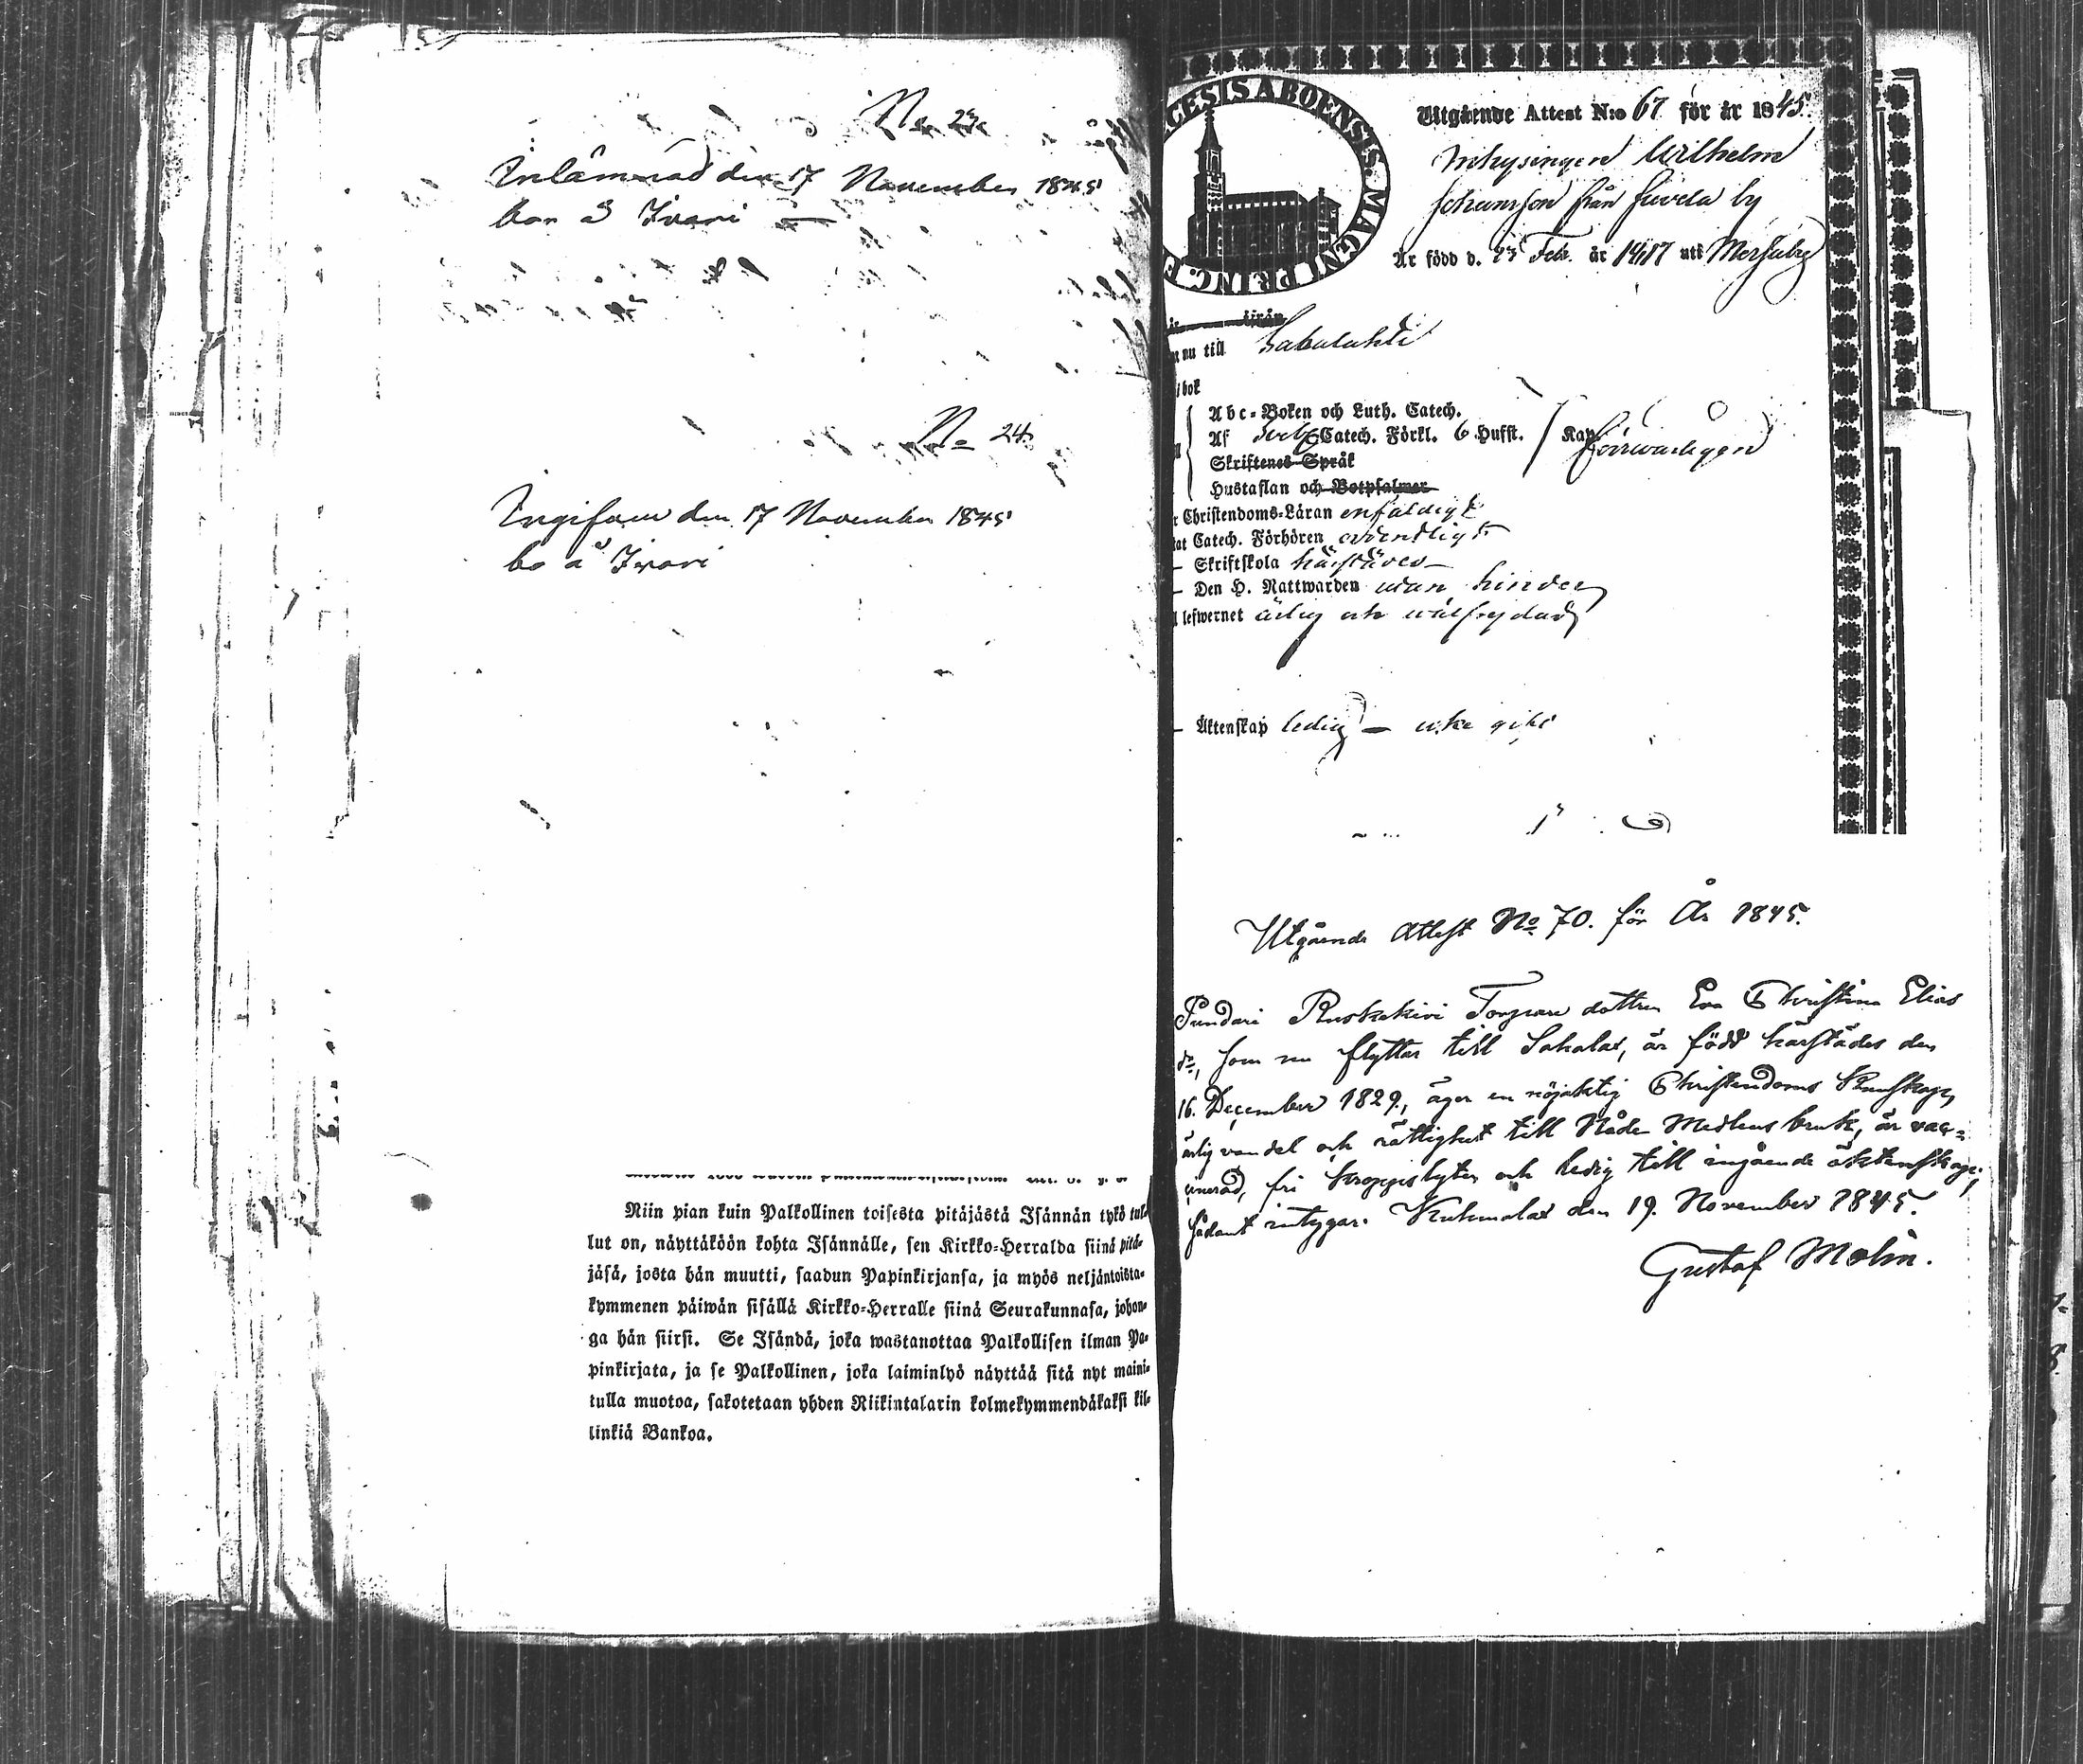 No 23.
Inlämnad den 17 November 1845
No 24.
den 17 November 1845
Niin pian kuin Palkollinen toisesta pitäjästä Isännän tykö tul-
lut on, näyttäköön kohta Isännälle, sen Kirkko-Herralda siinä pitä-
jäsä, josta hän muutti, saadun Papinkirjansa, ja myös neljäntoista-
kymmenen päiwän sisällä Kirkko-Herralle siinä Seurakunnasa, johon-
ga hän siirsi. Se Isändä, joka wastanottaa Palkollisen ilman Pa-
pinkirjata, ja se Palkollinen, joka laiminlyö näyttää sitä nyt maini-
tulla muotoa, sakotetaan yhden Riikintalarin kolmekymmendäkaksi kil-
linkiä Bankoa.
CESIS ABOENSIS. MAGNI PRINC. F
Utgående Attest N:o 67 för år 1845.
Inhysingen Wilhelm
Johansson från by
Är född d. 23 Feb. år uti
nu till
bok
Abc-Boken och Luth. Catech.
Af Catech. Förkl. 6 Hufst.
Skriftenes Språk
Hustaflan och Botpsalmer
Christendoms-Läran enfaldigt
Catech. Förhören ordentligt
Skriftskola härstädes
Den H. Nattwarden utan hinder
lefwernet ärlig och wälfrejdad
Äktenskap ledig - icke gift
Utgående Attest No 70. för År 1845.
Pundari Ruskakivi Torpare dottren Eva Christina Elias
dr, som nu flyttar till Sahalax, är född härstädes den
16. December 1829, äger en nöjaktig Christendoms Kunskap,
ärlig vandel och rättighet till Nåde Medlens bruk, är vac-
cinerad, fri kroppslyten och ledig till ingående äktenskap;
sådant intygar. Kuhmalax den 19. November 1845.
Gustaf Molin.